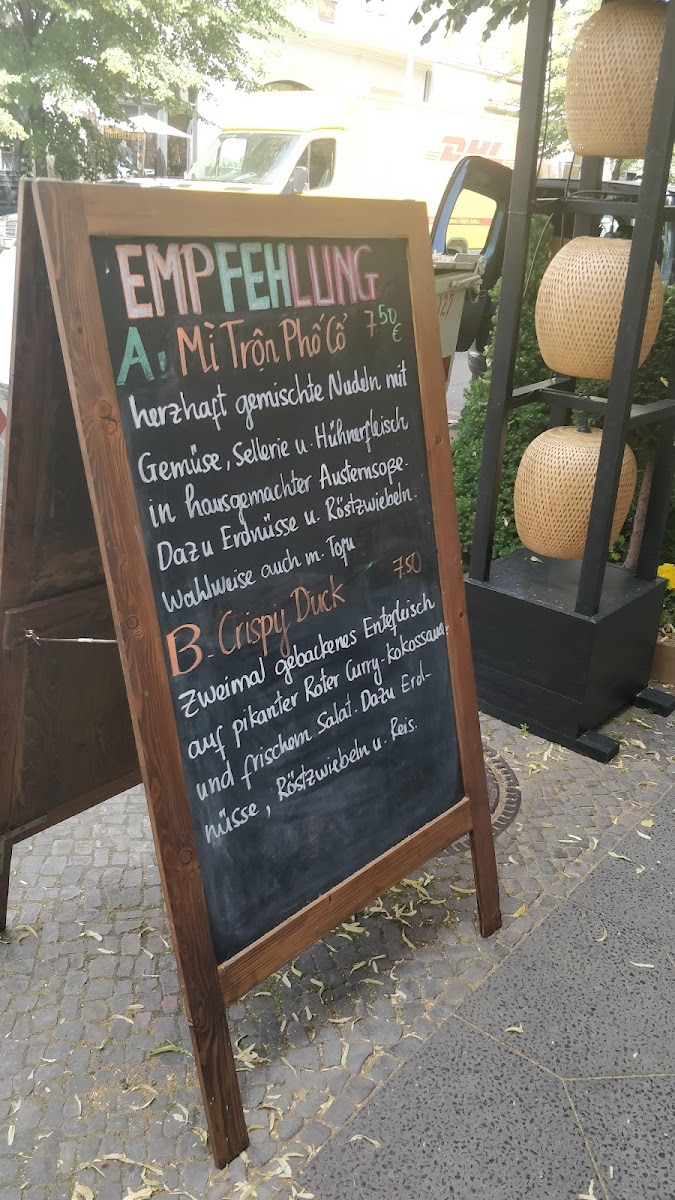 EMPFEHLUNG
A, Mì Trộn Phố Cổ 7⁵⁰ €
herzhaft gemischte Nudeln mit
Gemüse, Sellerie u. Hühnerfleisch
in hausgemachter Austernsoße.
Dazu Erdnüsse u. Röstzwiebeln.
Wahlweise auch m. Tofu
B - Crispy Duck 7.50
Zweimal gebackenes Entefleisch
auf pikanter Roter Curry-Kokossauce
und frischem Salat. Dazu Erd-
nüsse, Röstzwiebeln u. Reis.
DHL
127